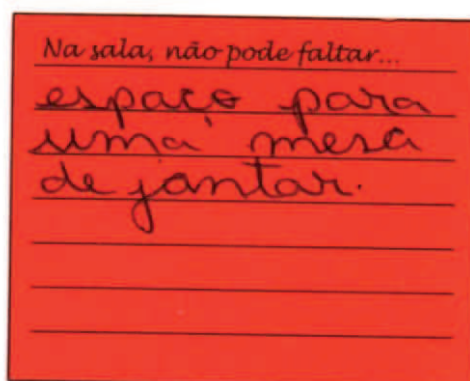 Na sala, não pode faltar...
espaço para
uma mesa
de jantar.